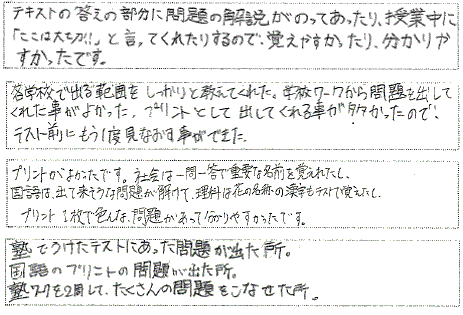 テキストの答えの部分に問題の解説がのってあったり、授業中に
「ここは大切!!」と言ってくれたりするので、覚えやすかったり、分かりや
すかったです。
各学校で出る範囲をしっかりと教えてくれた。学校ワークから問題を出して
くれた事がよかった。プリントとして出してくれる事が多かったので、
テスト前にもう1度見なおす事ができた。
プリントがよかったです。社会は一問一答で重要な名前を覚えれたし、
国語は、出て来そうな問題が解けて、理科は花の名称の漢字もテストで覚えたし、
プリント1枚で色んな、問題があって分かりやすかったです。
塾でうけたテストにあった問題が出た所。
国語のプリントの問題が出た所。
塾ワークを2周して、たくさんの問題をこなせた所。